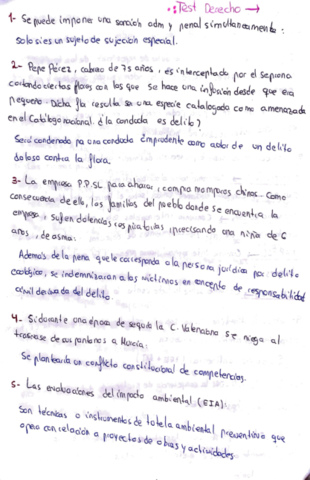 ·: Test Derecho →
1- Se puede imponer una sanción adm y penal simultaneamente:
Solo si es un sujeto de sujeción especial.
2- Pepe Pérez, cabrero de 75 años, es interceptado por el seprona
cortando ciertas flores con las que se hace una infusión desde que era
pequeño. Dicha flor resulta ser una especie catalogada como amenazada
en el Catálogo nacional. ¿la conducta es delito?
Será condenado por una conducta imprudente como autor de un delito
doloso contra la flora.
3- La empresa P.P.SL para ahorrar, compra mamparas chinas. Como
consecuencia de ello, las familias del pueblo donde se encuentra la
empresa, sufren dolencias respiratorias, precisando una niña de 6
años, de asma.
Además de la pena que le corresponda a la persona jurídica por delito
ecológico, se indemnizarán a las víctimas en concepto de responsabilidad
civil derivada del delito.
4- Si durante una época de sequía la C. Valenciana se niega al
trasvase de sus pantanos a Murcia:
Se plantearía un conflicto constitucional de competencias.
5- Las evaluaciones del impacto ambiental (EIA):
Son técnicas o instrumentos de tutela ambiental preventiva que
opera con relación a proyectos de obras y actividades.